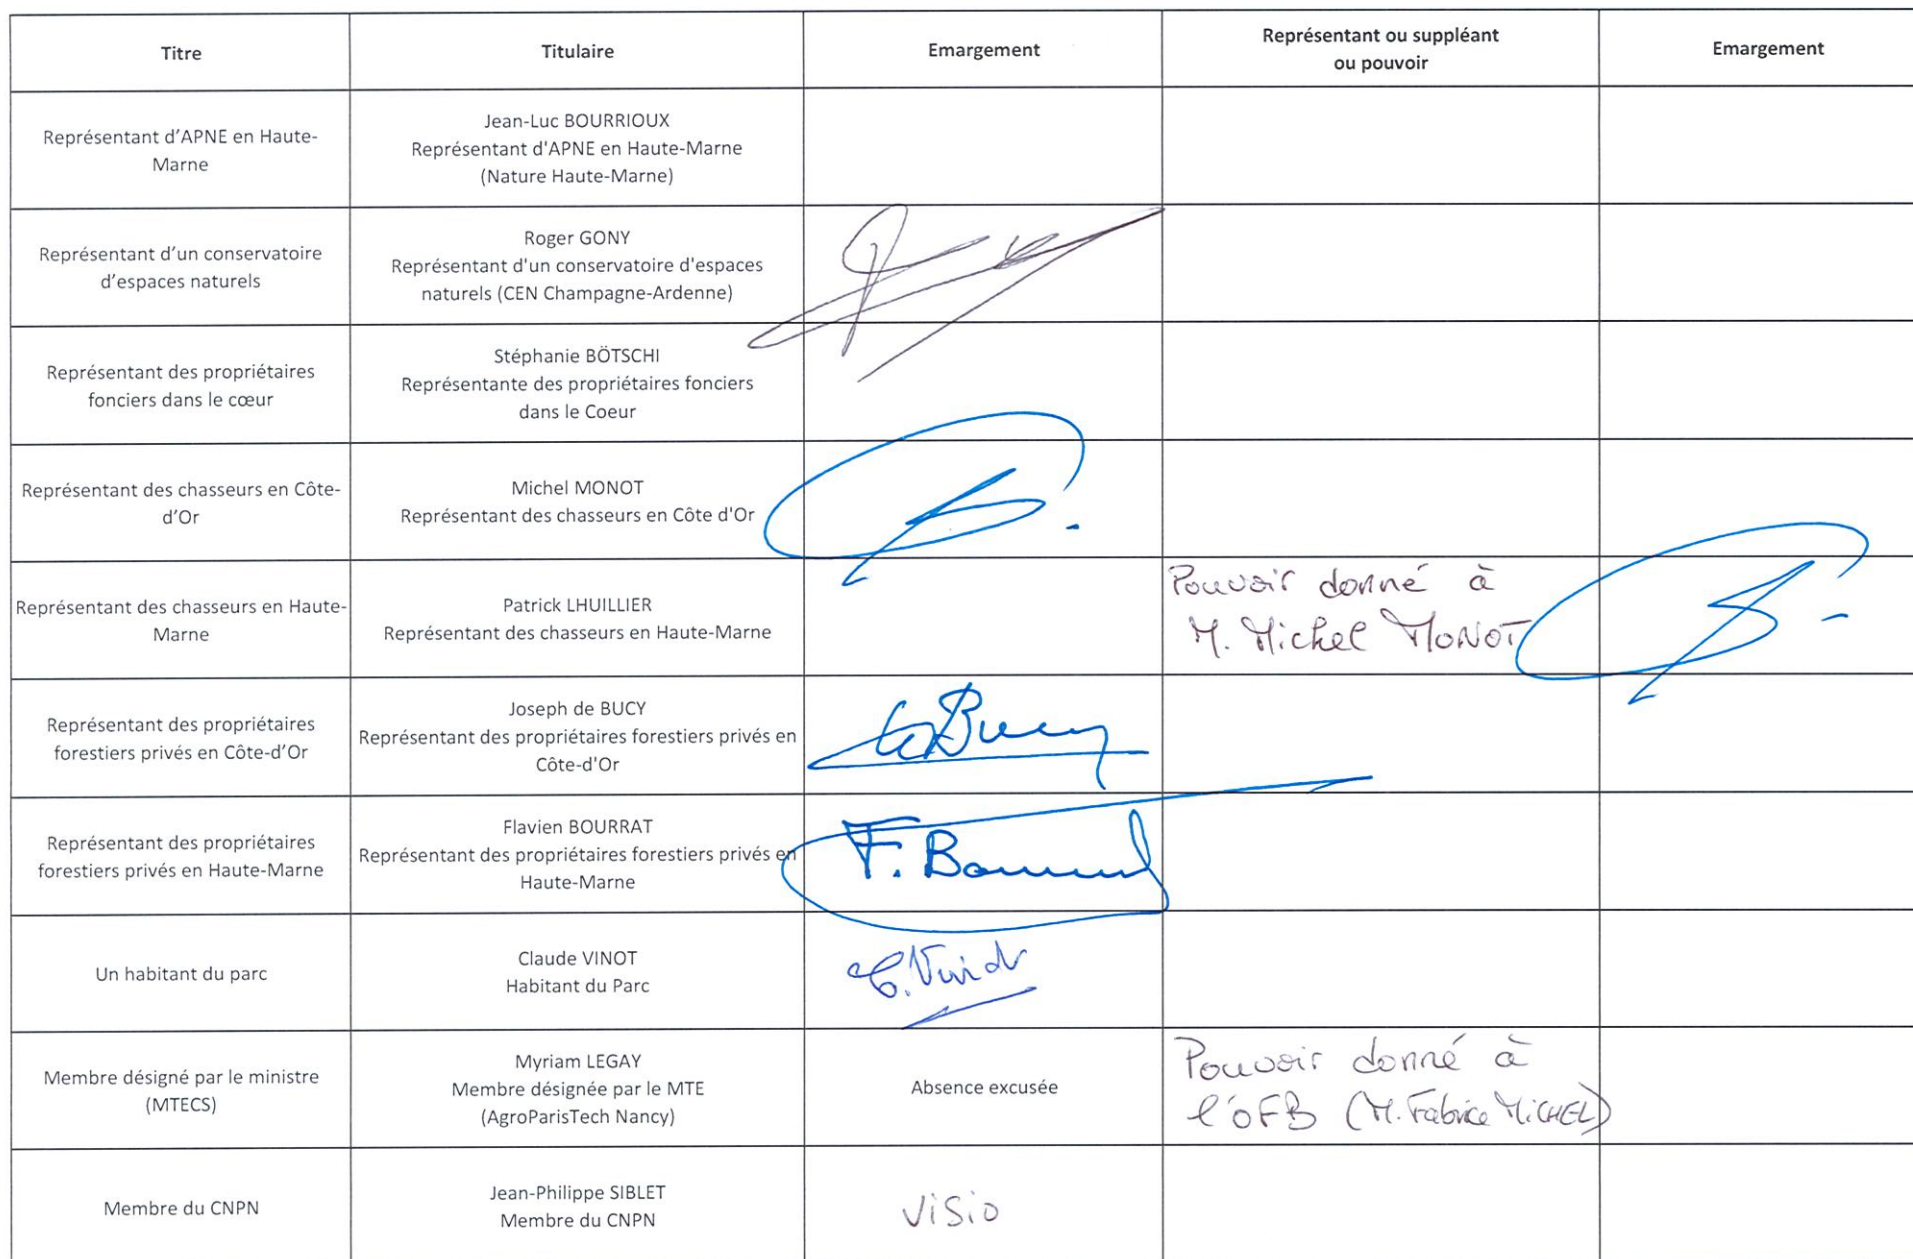 Titre
Titulaire
Emargement
Représentant ou suppléant
ou pouvoir
Emargement
Représentant d’APNE en Haute-
Marne
Jean-Luc BOURRIOUX
Représentant d'APNE en Haute-Marne
(Nature Haute-Marne)
Représentant d’un conservatoire
d’espaces naturels
Roger GONY
Représentant d'un conservatoire d'espaces
naturels (CEN Champagne-Ardenne)
Représentant des propriétaires
fonciers dans le cœur
Stéphanie BÖTSCHI
Représentante des propriétaires fonciers
dans le Coeur
Représentant des chasseurs en Côte-
d’Or
Michel MONOT
Représentant des chasseurs en Côte d'Or
Représentant des chasseurs en Haute-
Marne
Patrick LHUILLIER
Représentant des chasseurs en Haute-Marne
Pouvoir donné à
M. Michel MONOT
Représentant des propriétaires
forestiers privés en Côte-d’Or
Joseph de BUCY
Représentant des propriétaires forestiers privés en
Côte-d'Or
de Bucy
Représentant des propriétaires
forestiers privés en Haute-Marne
Flavien BOURRAT
Représentant des propriétaires forestiers privés en
Haute-Marne
F. Bourrat
Un habitant du parc
Claude VINOT
Habitant du Parc
C. Vinot
Membre désigné par le ministre
(MTECS)
Myriam LEGAY
Membre désignée par le MTE
(AgroParisTech Nancy)
Absence excusée
Pouvoir donné à
l'OFB (M. Fabrice MICHEL)
Membre du CNPN
Jean-Philippe SIBLET
Membre du CNPN
Visio